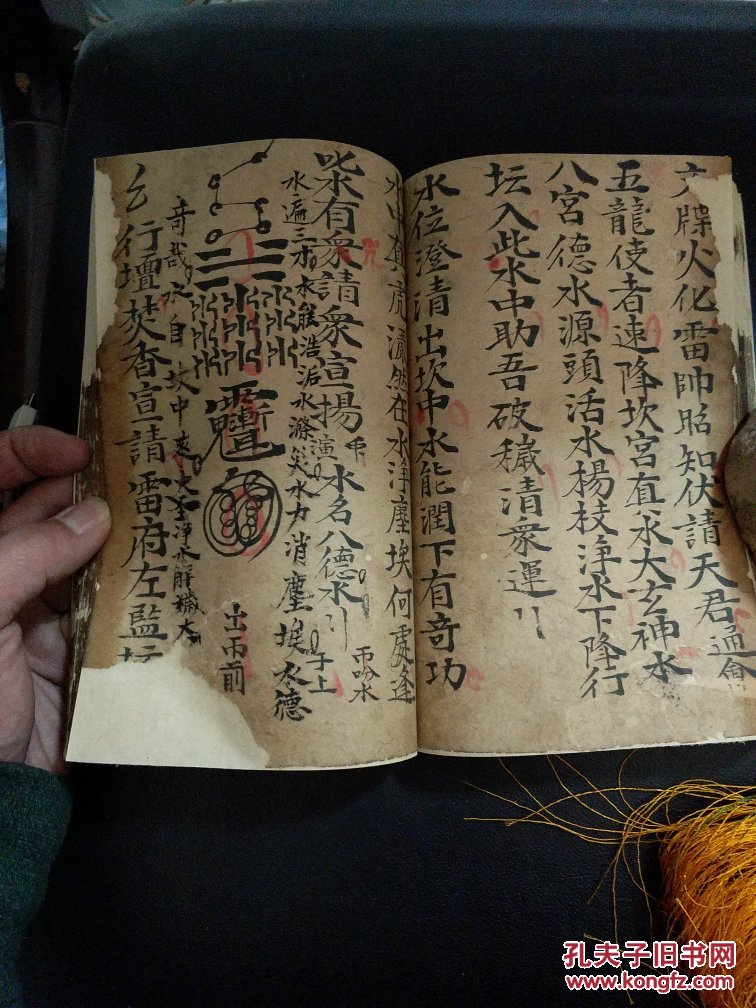 牒火化雷帥昭知伏請天君通
五龍使者速降坎宮直水大玄神水
八宮德水源頭活水楊枝淨水下降行
坛入此水中助吾破穢清衆運
水位澄清出坎中水能潤下有竒功
水中真虎濤然在水浄塵埃何處逢
水有衆請衆宣揚演水名八德水
水遍三 水能浩泥水滌災水力消塵埃水德
于上
水
出帀前
竒哉水自坎中 浄水解穢大
行壇焚香宣請雷府左監坛
孔夫子旧书网
www.kongfz.com